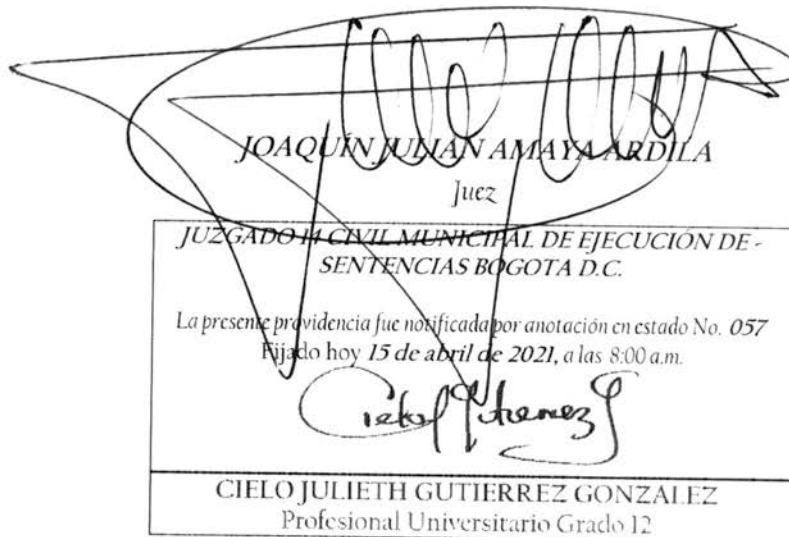 JOAQUÍN JULIÁN AMAYA ARDILA
Juez
JUZGADO 14 CIVIL MUNICIPAL DE EJECUCIÓN DE -
SENTENCIAS BOGOTA D.C.
La presente providencia fue notificada por anotación en estado No. 057
Fijado hoy 15 de abril de 2021, a las 8:00 a.m.
Cielo Gutierrez G
CIELO JULIETH GUTIERREZ GONZALEZ
Profesional Universitario Grado 12